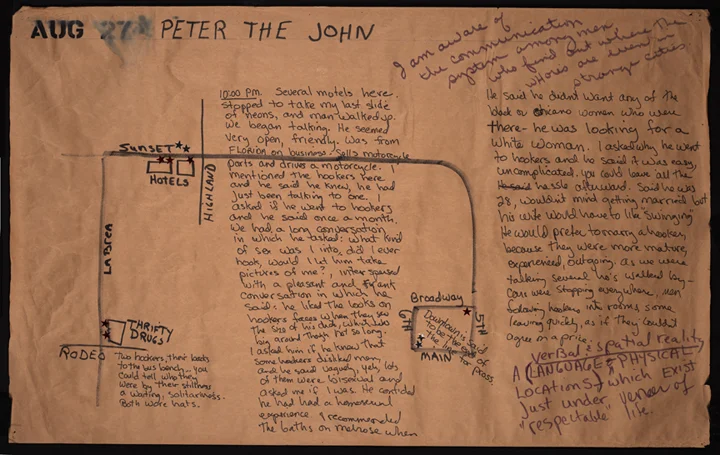 AUG 27 PETER THE JOHN
I am aware of
the communication
system among men
who find out where the
whores are even in
strange cities.
10:00 PM. Several motels here.
stopped to take my last slide
of neons, and man walked up.
we began talking. He seemed
very open, friendly. Was from
FLORIDA on business. Sells motorcycle
parts and drives a motorcycle. I
mentioned the hookers here
and he said he knew, he had
just been talking to one. I
asked if he went to hookers
and he said once a month.
We had a long conversation
in which he asked: what kind
of sex was I into, did I ever
hook, would I let him take
pictures of me?, interspersed
with a pleasant and frank
conversation in which he
said: he liked the looks on
hookers faces when they saw
the size of his dick, which was
big around thick not so long.
I asked him if he knew that
some hookers disliked men,
and he said vaguely, yeh, lots
of them were bisexual and
asked me if I was. He confided
he had had a homosexual
experience. I recommended
the baths on melrose when
He said he didnt want any of the
black or chicano women who were
there - he was looking for a
white woman. I asked why he went
to hookers and he said it was easy,
uncomplicated. you could leave all the
hassle afterward. Said he was
28, wouldnt mind getting married but
his wife would have to like "swinging"
He would prefer to marry a hooker,
because they were more mature,
experienced, outgoing. as we were
talking several ho's walked by -
Cars were stopping everywhere, men
following hookers into rooms, some
leaving quickly, as if they couldnt
agree on a price.
SUNSET
HOTELS
HIGHLAND
LA BREA
THRIFTY
DRUGS
RODEO
Two hookers, their backs
to the bus bench - you
could tell who they
were by their stillness
a waiting, solitariness.
Both wore hats.
Broadway
6TH
5TH
MAIN
Downtown is said
to be the end of
the line for pross.
verbal & spatial reality
A LANGUAGE & PHYSICAL
LOCATIONS which exist
Just under veneer of
"respectable" life.